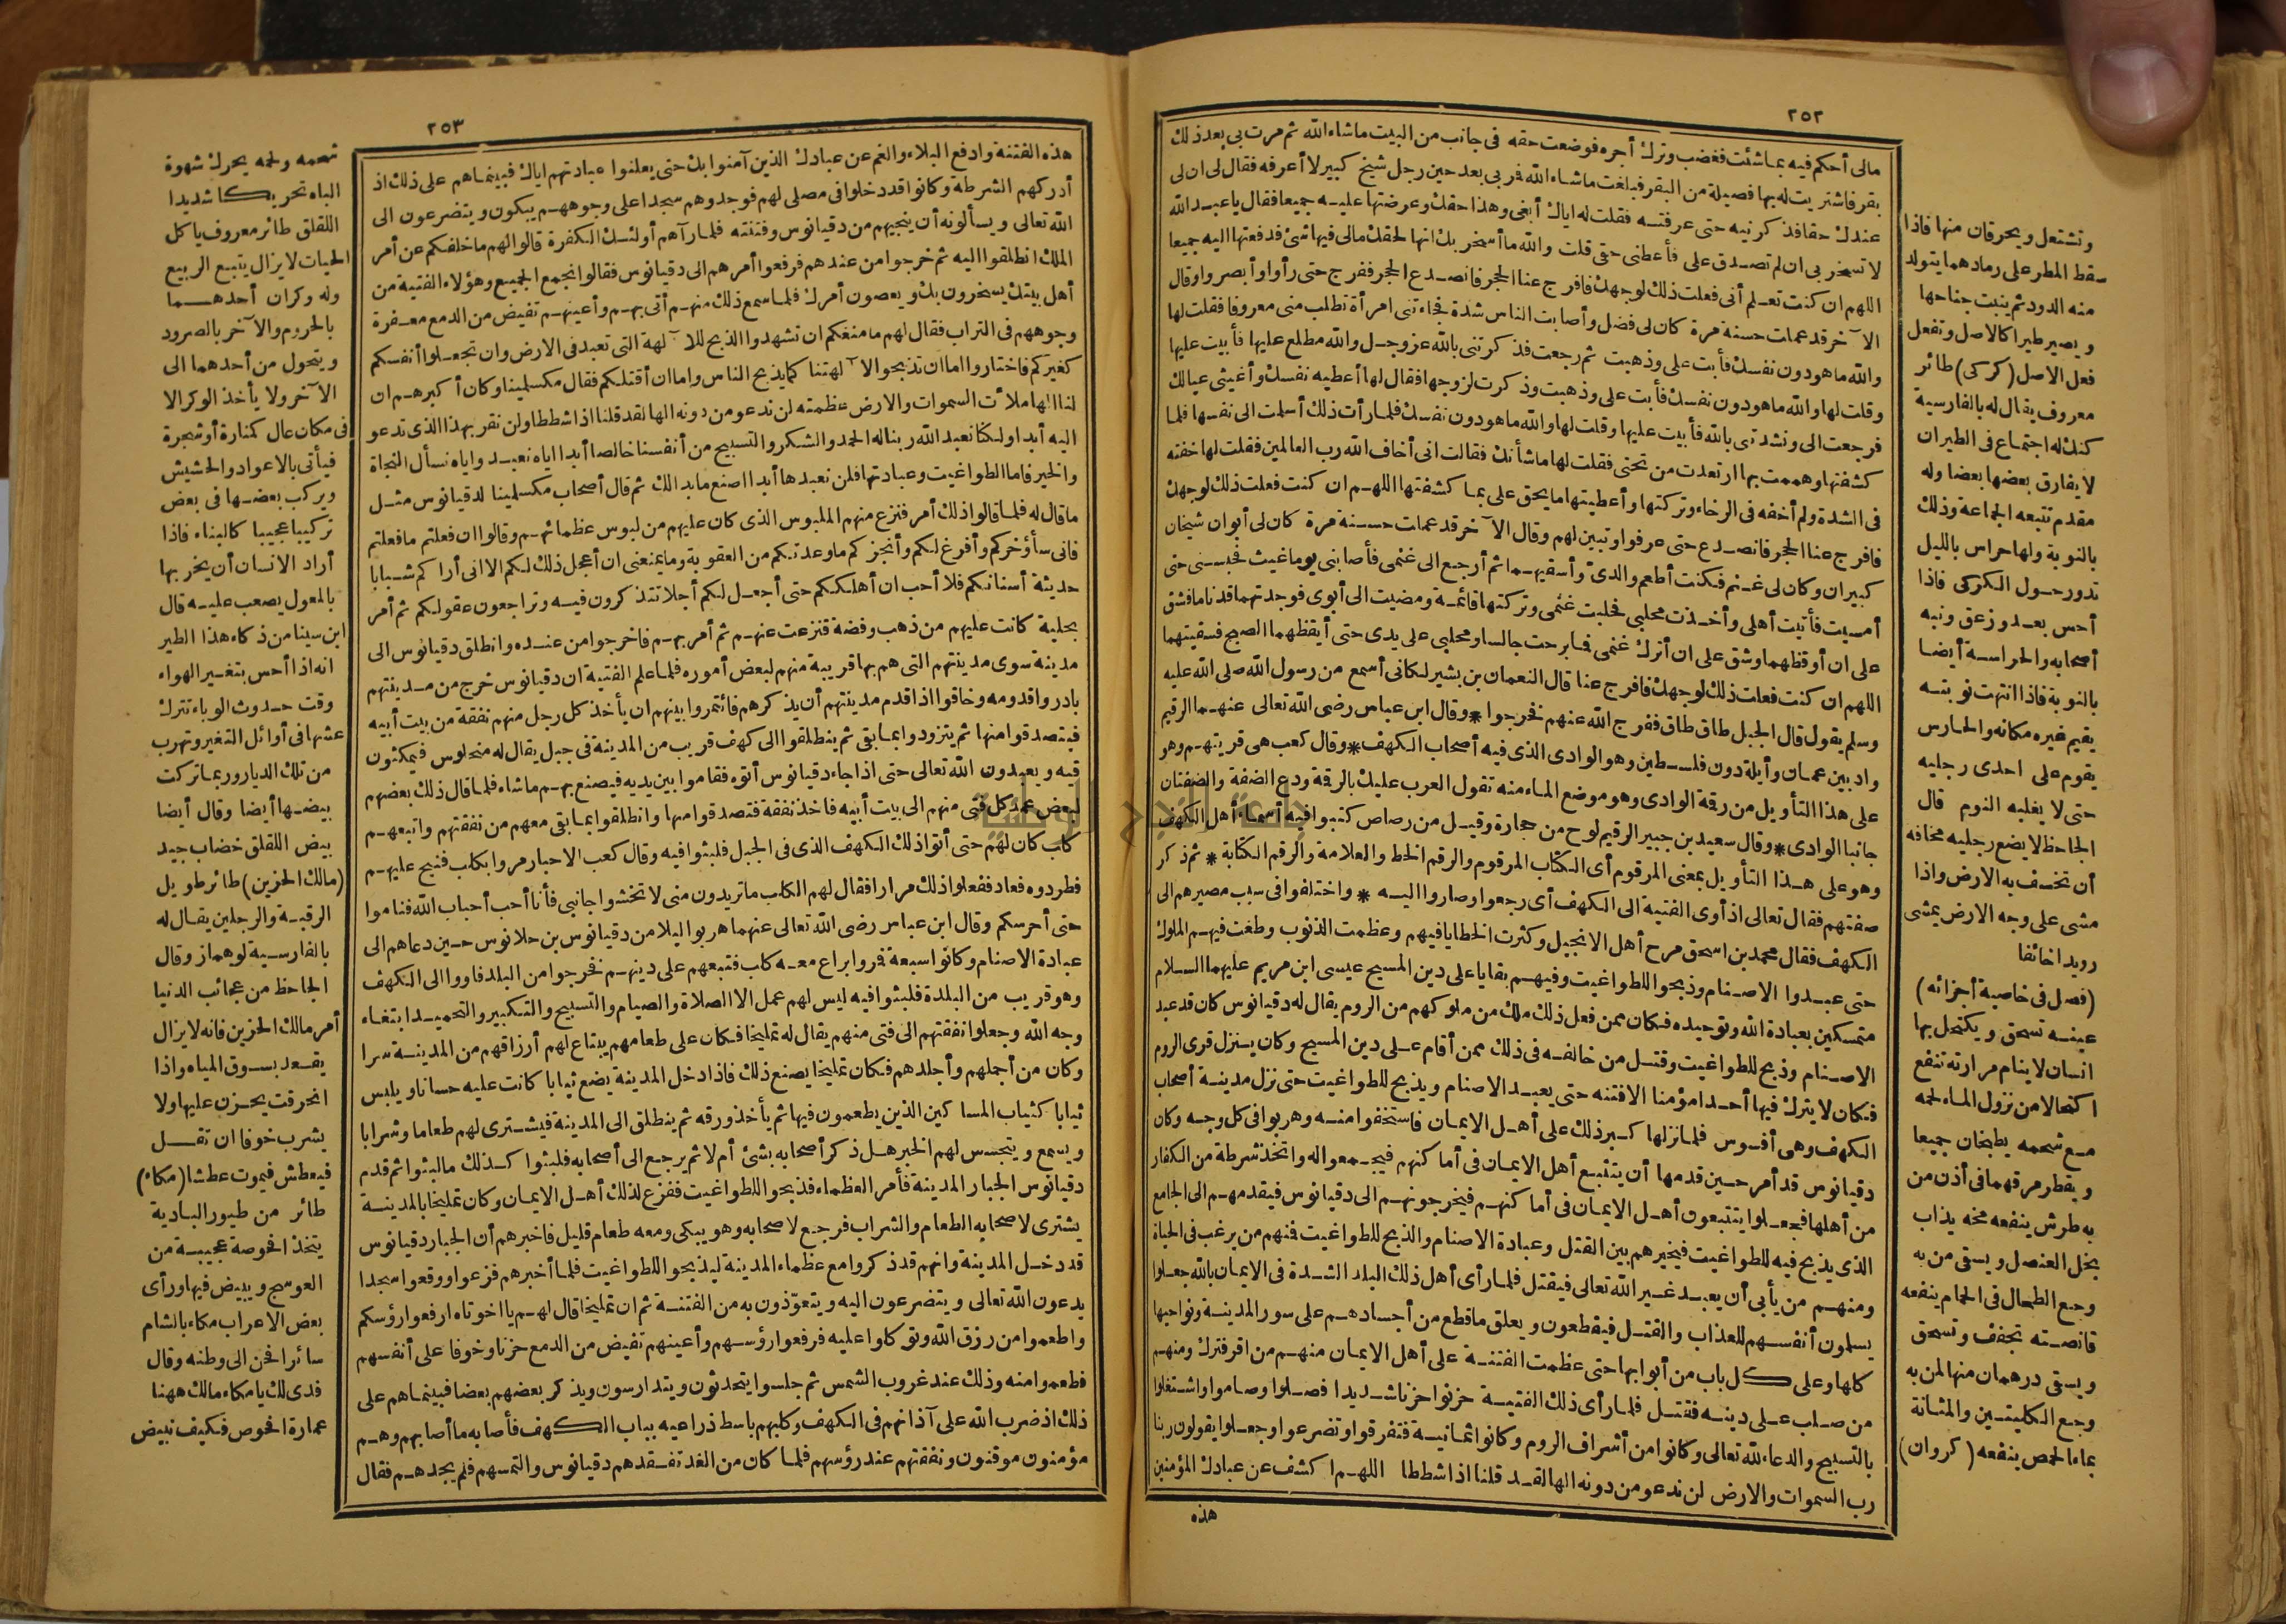 ٢٥٢
مالى أحكم فيه بما شئت فغضب وترك أجره فوضعت حقه فى جانب من البيت ما شاء الله ثم مرت بى بعد ذلك
بقر فاشتريت له بها فصيلة من البقر فبلغت ما شاء الله فمر بى بعد حين رجل شيخ كبير لا أعرفه فقال لى ان لى
عندك حقا فذكرنيه حتى عرفته فقلت له اياك أبغى وهذا حقك وعرضتها عليه جميعا فقال يا عبد الله
لا تسخر بى ان لم تصدق على فأعطنى حقى قلت والله ما أسخر بك انها لحقك مالى فيها شئ فدفعتها اليه جميعا
اللهم ان كنت تعلم أنى فعلت ذلك لوجهك فافرج عنا الحجر فانصدع الحجر ففرج حتى رأوا وأبصروا وقال
الآخر قد عملت حسنة مرة كان لى فضل وأصابت الناس شدة فجاءتنى امرأة تطلب منى معروفا فقلت لها
والله ما هو دون نفسك فأبت على وذهبت ثم رجعت فذكرتنى بالله عز وجل والله مطلع عليها فأبيت عليها
وقلت لها والله ما هو دون نفسك فأبت على وذهبت وذكرت لزوجها فقال لها أعطيه نفسك وأغيثى عيالك
فرجعت الى ونشدتنى بالله فأبيت عليها وقلت لها والله ما هو دون نفسك فلما رأت ذلك أسلمت الى نفسها فلما
كشفتها وهممت بها ارتعدت من تحتى فقلت لها ما شأنك فقالت انى أخاف الله رب العالمين فقلت لها خفته
فى الشدة ولم أخفه فى الرخاء وتركتها وأعطيتها ما يحق على بما كشفتها اللهم ان كنت فعلت ذلك لوجهك
فافرج عنا الحجر فانصدع حتى عرفوا وتبين لهم وقال الآخر قد عملت حسنة مرة كان لى أبوان شيخان
كبيران وكان لى غنم فكنت أطعم والدىّ وأسقيهما ثم أرجع الى غنمى فأصابنى يوما غيث فحبسنى حتى
أمسيت فأتيت أهلى وأخذت محلبى فحلبت غنمى وتركتها قائمة ومضيت الى أبوى فوجدتهما قد ناما فشق
على ان أوقظهما وشق على ان أترك غنمى فما برحت جالسا ومحلبى على يدى حتى أيقظهما الصبح فسقيتهما
اللهم ان كنت فعلت ذلك لوجهك فافرج عنا قال النعمان بن بشير لكانى أسمع من رسول الله صلى الله عليه
وسلم يقول قال الجبل طاق طاق ففرج الله عنهم فخرجوا * وقال ابن عباس رضى الله تعالى عنهما الرقيم
واد بين عمان وأيلة دون فلسطين وهو الوادى الذى فيه أصحاب الكهف * وقال كعب هى قريتهم وهو
على هذا التأويل من رقة الوادى وهو موضع الماء منه تقول العرب عليك بالرقة ودع الضفة والضفتان
جانبا الوادى * وقال سعيد بن جبير الرقيم لوح من حجارة وقيل من رصاص كتبوا فيه أسماء أهل الكهف
وهو على هذا التأويل بمعنى المرقوم أى الكتاب المرقوم والرقم الخط والعلامة والرقم الكتابة * ثم ذكر
صفتهم فقال تعالى اذ أوى الفتية الى الكهف أى رجعوا وصاروا اليه * واختلفوا فى سبب مصيرهم الى
الكهف فقال محمد بن اسحق مرح أهل الانجيل وكثرت الخطايا فيهم وعظمت الذنوب وطغت فيهم الملوك
حتى عبدوا الاصنام وذبحوا للطواغيت وفيهم بقايا على دين المسيح عيسى ابن مريم عليهما السلام
متمسكين بعبادة الله وتوحيده فكان ممن فعل ذلك ملك من ملوكهم من الروم يقال له دقيانوس كان قد عبد
الاصنام وذبح للطواغيت وقتل من خالفه فى ذلك ممن أقام على دين المسيح وكان ينزل قرى الروم
فكان لا يترك فيها أحدا مؤمنا الا فتنه حتى يعبد الاصنام ويذبح للطواغيت حتى نزل مدينة أصحاب
الكهف وهى أفسوس فلما نزلها كبر ذلك على أهل الايمان فاستخفوا منه وهربوا فى كل وجه وكان
دقيانوس قد أمر حين قدمها أن يتتبع أهل الايمان فى أماكنهم فيجمعوا له واتخذ شرطة من الكفار
من أهلها فجعلوا يتتبعون أهل الايمان فى أماكنهم فيخرجونهم الى دقيانوس فيقدمهم الى الجامع
الذى يذبح فيه للطواغيت فيخيرهم بين القتل وعبادة الاصنام والذبح للطواغيت فمنهم من يرغب فى الحياة
ومنهم من يأبى أن يعبد غير الله تعالى فيقتل فلما رأى أهل ذلك البلد الشدة فى الايمان بالله جعلوا
يسلمون أنفسهم للعذاب والقتل فيقطعون ويعلق ما قطع من أجسادهم على سور المدينة ونواحيها
كلها وعلى كل باب من أبوابها حتى عظمت الفتنة على أهل الايمان منهم من اقر فترك ومنهم
من صلب على دينه فقتل فلما رأى ذلك الفتية حزنوا حزنا شديدا فصلوا وصاموا واشتغلوا
بالتسبيح والدعاء لله تعالى وكانوا من أشراف الروم وكانوا ثمانية فتفرقوا وتضرعوا وجعلوا يقولون ربنا
رب السموات والارض لن ندعو من دونه الها لقد قلنا اذا شططا اللهم اكشف عن عبادك المؤمنين
هذه
وتشتعل ويحرقان منها فاذا
سقط المطر على رمادهما يتولد
منه الدود ثم ينبت جناحها
ويصير طيرا كالاصل وتفعل
فعل الاصل (كركى) طائر
معروف يقال له بالفارسية
كنك له اجتماع فى الطيران
لا يفارق بعضها بعضا وله
مقدم تتبعه الجماعة وذلك
بالنوبة ولها حراس بالليل
تدور حول الكركى فاذا
أحس بعدو زعق ونبه
أصحابه والحراسة أيضا
بالنوبة فاذا انتهت نوبته
يقيم غيره مكانه والحارس
يقوم على احدى رجليه
حتى لا يغلبه النوم قال
الجاحظ لا يضع رجليه مخافة
أن تخسف به الارض واذا
مشى على وجه الارض يمشى
رويدا خائفا
(فصل فى خاصية أجزائه)
عينه تسحق ويكتحل بها
انسان لا ينام مرارته تنفع
اكتحالا من نزول الماء لحمه
مع شحمه يطبخان جميعا
ويقطر مرقهما فى أذن من
به طرش ينفعه مخه يذاب
بخل العنصل ويسقى من به
وجع الطحال فى الحمام ينفعه
قانصته تجفف وتسحق
ويسقى درهمان منها لمن به
وجع الكليتين والمثانة
بماء الحمص ينفعه (كروان)
٢٥٣
هذه الفتنة وادفع البلاء والغم عن عبادك الذين آمنوا بك حتى يعلنوا عبادتهم اياك فبينما هم على ذلك اذ
أدركهم الشرطة وكانوا قد دخلوا فى مصلى لهم فوجدوهم سجدا على وجوههم يبكون ويتضرعون الى
الله تعالى ويسألونه أن ينجيهم من دقيانوس وفتنته فلما رآهم أولئك الكفرة قالوا لهم ما خلفكم عن أمر
الملك انطلقوا اليه ثم خرجوا من عندهم فرفعوا أمرهم الى دقيانوس فقالوا نجمع الجميع وهؤلاء الفتية من
أهل بيتك يسخرون بك ويعصون أمرك فلما سمع ذلك منهم أتى بهم وأعينهم تفيض من الدمع معفرة
وجوههم فى التراب فقال لهم ما منعكم ان تشهدوا الذبح للآلهة التى تعبد فى الارض وان تجعلوا أنفسكم
كغيركم فاختاروا اما ان تذبحوا لآلهتنا كما يذبح الناس واما ان أقتلكم فقال مكسلمينا وكان أكبرهم ان
لنا الها ملأت السموات والارض عظمته لن ندعو من دونه الها لقد قلنا اذا شططا ولن نقر بهذا الذى تدعو
اليه أبدا ولكنا نعبد الله ربنا له الحمد والشكر والتسبيح من أنفسنا خالصا أبدا اياه نعبد واياه نسأل النجاة
والخير فاما الطواغيت وعبادتها فلن نعبدها أبدا اصنع ما بدالك ثم قال أصحاب مكسلمينا لدقيانوس مثل
ما قال له فلما قالوا ذلك أمر فنزع منهم الملبوس الذى كان عليهم من لبوس عظمائهم وقالوا ان فعلتم ما فعلتم
فانى سأؤخركم وأفرغ لكم وأنجز كم ما وعدتكم من العقوبة وما يمنعنى ان أعجل ذلك لكم الا انى أراكم شبابا
حديثة أسنانكم فلا أحب ان أهلككم حتى أجعل لكم أجلا تتذكرون فيه وتراجعون عقولكم ثم أمر
بحلية كانت عليهم من ذهب وفضة فنزعت عنهم ثم أمر بهم فاخرجوا من عنده وانطلق دقيانوس الى
مدينة سوى مدينتهم التى هم بها قريبة منهم لبعض أموره فلما علم الفتية ان دقيانوس خرج من مدينتهم
بادروا قدومه وخافوا اذا قدم مدينتهم أن يذكرهم فائتمروا بينهم ان يأخذ كل رجل منهم نفقة من بيت أبيه
فيتصدقوا منها ثم يتزودوا بما بقى ثم ينطلقوا الى كهف قريب من المدينة فى جبل يقال له منحلوس فيمكثون
فيه ويعبدون الله تعالى حتى اذا جاء دقيانوس أتوه فقاموا بين يديه فيصنع بهم ما شاء فلما قال ذلك بعضهم
لبعض عمد كل فتى منهم الى بيت أبيه فاخذ نفقة فتصدقوا منها وانطلقوا بما بقى معهم من نفقتهم واتبعهم
كلب كان لهم حتى أتوا ذلك الكهف الذى فى الجبل فلبثوا فيه وقال كعب الاحبار مروا بكلب فنبح عليهم
فطردوه فعاد ففعلوا ذلك مرارا فقال لهم الكلب ما تريدون منى لا تخشوا جانبى فأنا أحب أحباب الله فناموا
حتى أحرسكم وقال ابن عباس رضى الله تعالى عنهما هربوا ليلا من دقيانوس بن حلانوس حين دعاهم الى
عبادة الاصنام وكانوا سبعة فمروا براع معه كلب فتبعهم على دينهم فخرجوا من البلد فاووا الى الكهف
وهو قريب من البلدة فلبثوا فيه ليس لهم عمل الا الصلاة والصيام والتسبيح والتكبير والتحميد ابتغاء
وجه الله وجعلوا نفقتهم الى فتى منهم يقال له تمليخا فكان على طعامهم يبتاع لهم أرزاقهم من المدينة سرا
وكان من أجملهم وأجلدهم فكان تمليخا يصنع ذلك فاذا دخل المدينة يضع ثيابا كانت عليه حسانا ويلبس
ثيابا كثياب المساكين الذين يطعمون فيها ثم يأخذ ورقه ثم ينطلق الى المدينة فيشترى لهم طعاما وشرابا
ويسمع ويتجسس لهم الخبر هل ذكر أصحابه بشئ أم لا ثم يرجع الى أصحابه فلبثوا كذلك ما لبثوا ثم قدم
دقيانوس الجبار المدينة فأمر العظماء فذبحوا للطواغيت ففزع لذلك أهل الايمان وكان تمليخا بالمدينة
يشترى لاصحابه الطعام والشراب فرجع لاصحابه وهو يبكى ومعه طعام قليل فاخبرهم أن الجبار دقيانوس
قد دخل المدينة وانهم قد ذكروا مع عظماء المدينة ليذبحوا للطواغيت فلما أخبرهم فزعوا ووقعوا سجدا
يدعون الله تعالى ويتضرعون اليه ويتعوّذون به من الفتنة ثم ان تمليخا قال لهم يا اخوتاه ارفعوا رؤسكم
واطعموا من رزق الله وتوكلوا عليه فرفعوا رؤسهم وأعينهم تفيض من الدمع حزنا وخوفا على أنفسهم
فطعموا منه وذلك عند غروب الشمس ثم جلسوا يتحدثون ويتدارسون ويذكر بعضهم بعضا فبينما هم على
ذلك اذ ضرب الله على آذانهم فى الكهف وكلبهم باسط ذراعيه بباب الكهف فأصابه ما أصابهم وهم
مؤمنون موقنون ونفقتهم عند رؤسهم فلما كان من الغد تفقدهم دقيانوس والتمسهم فلم يجدهم فقال
شحمه ولحمه يحرك شهوة
الباه تحريكا شديدا
اللقلق طائر معروف يأكل
الحيات لا يزال يتبع الربيع
وله وكران أحدهما
بالجروم والآخر بالصرود
ويتحول من أحدهما الى
الآخر ولا يأخذ الوكر الا
فى مكان عال كمنارة أو شجرة
فيأتى بالاعواد والحشيش
ويركب بعضها فى بعض
تركيبا عجيبا كالبناء فاذا
أراد الانسان أن يخربها
بالمعول يصعب عليه قال
ابن سينا من ذكاء هذا الطير
انه اذا أحس بتغير الهواء
وقت حدوث الوباء تترك
عشها فى أوائل التغير وتهرب
من تلك الديار وربما تركت
بيضها أيضا وقال أيضا
بيض اللقلق خضاب جيد
(مالك الحزين) طائر طويل
الرقبة والرجلين يقال له
بالفارسية لوهماز وقال
الجاحظ من عجائب الدنيا
أمر مالك الحزين فانه لا يزال
يقعد بسوق المياه واذا
انخرقت يحزن عليها ولا
يشرب خوفا ان تقل
فيعطش فيموت عطشا (مكاء)
طائر من طيور البادية
يتخذ افحوصة عجيبة من
العوسج ويبيض فيها ورأى
بعض الاعراب مكاء بالشام
سائرا فحن الى وطنه وقال
فدى لك يا مكاء مالك ههنا
عمارة افحوص فكيف تبيض
جامعة النجاح الوطنية